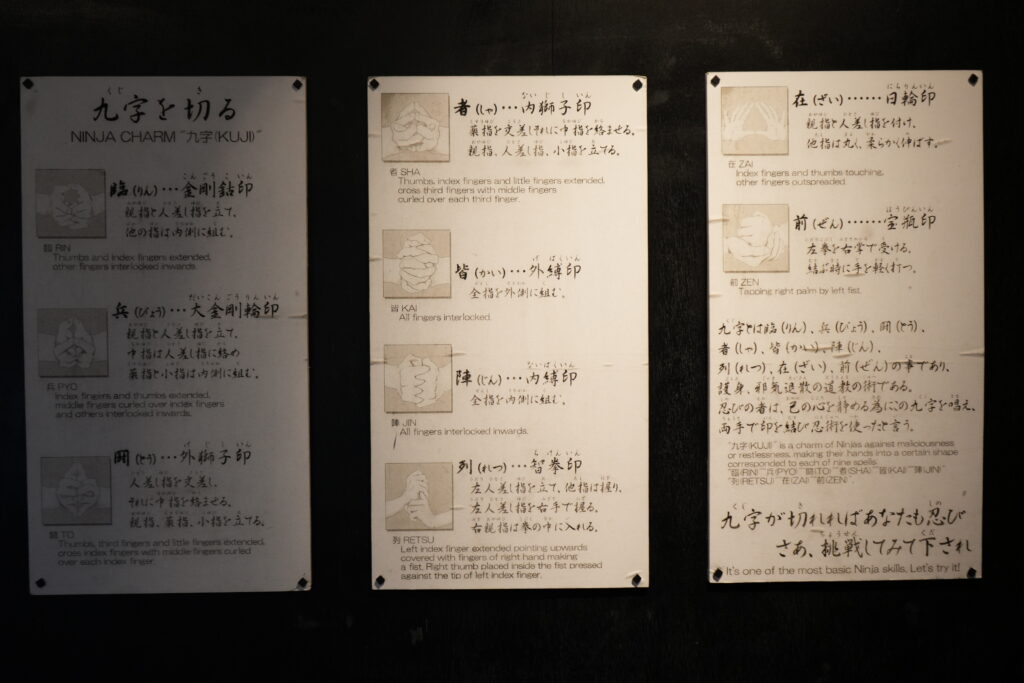 九字を切る
NINJA CHARM "九字(KUJI)"
臨(りん)…金剛鈷印
親指と人差し指を立て、
他の指は内側に組む。
臨 RIN
Thumbs and Index fingers extended,
other fingers interlocked inwards.
兵(ぴょう)…大金剛輪印
親指と人差し指を立て、
中指は人差し指に絡め
薬指と小指は内側に組む。
兵 PYO
Index fingers and thumbs extended,
middle fingers curled over index fingers
and others interlocked inwards.
闘(とう)…外獅子印
人差し指を交差し、
それに中指を絡ませる。
親指、薬指、小指を立てる。
闘 TO
Thumbs, third fingers and little fingers extended,
cross index fingers with middle fingers curled
over each index finger.
者(しゃ)…内獅子印
薬指を交差しそれに中指を絡ませる。
親指、人差し指、小指を立てる。
者 SHA
Thumbs, index fingers and little fingers extended,
cross third fingers with middle fingers
curled over each third finger.
皆(かい)…外縛印
全指を外側に組む。
皆 KAI
All fingers interlocked.
陣(じん)…内縛印
全指を内側に組む。
陣 JIN
All fingers interlocked inwards.
列(れつ)…智拳印
左人差し指を立て、他指は握り、
左人差し指を右手で握る。
右親指は拳の中に入れる。
列 RETSU
Left index finger extended pointing upwards
covered with fingers of right hand making
a fist. Right thumb placed inside the fist pressed
against the tip of left index finger.
在(ざい)……日輪印
親指と人差し指を付け、
他指は丸く、柔らかく伸ばす。
在 ZAI
Index fingers and thumbs touching,
other fingers outspreaded.
前(ぜん)……宝瓶印
左拳を右掌で受ける。
結ぶ時に手を軽く打つ。
前 ZEN
Tapping right palm by left fist.
九字とは臨(りん)、兵(ぴょう)、闘(とう)、
者(しゃ)、皆(かい)、陣(じん)、
列(れつ)、在(ざい)、前(ぜん)の事であり、
護身、邪気退散の道教の術である。
忍びの者は、己の心を静める為にこの九字を唱え、
両手で印を結び忍術を使ったと言う。
"九字(KUJI)" is a charm of Ninjas against maliciousness
or restlessness, making their hands into a certain shape
corresponded to each of nine spells.
"臨(RIN)" "兵(PYO)" "闘(TO)" "者(SHA)" "皆(KAI)" "陣(JIN)"
"列(RETSU)" "在(ZAI)" "前(ZEN)".
九字が切れればあなたも忍び
さあ、挑戦してみて下され
It's one of the most basic Ninja skills. Let's try it!